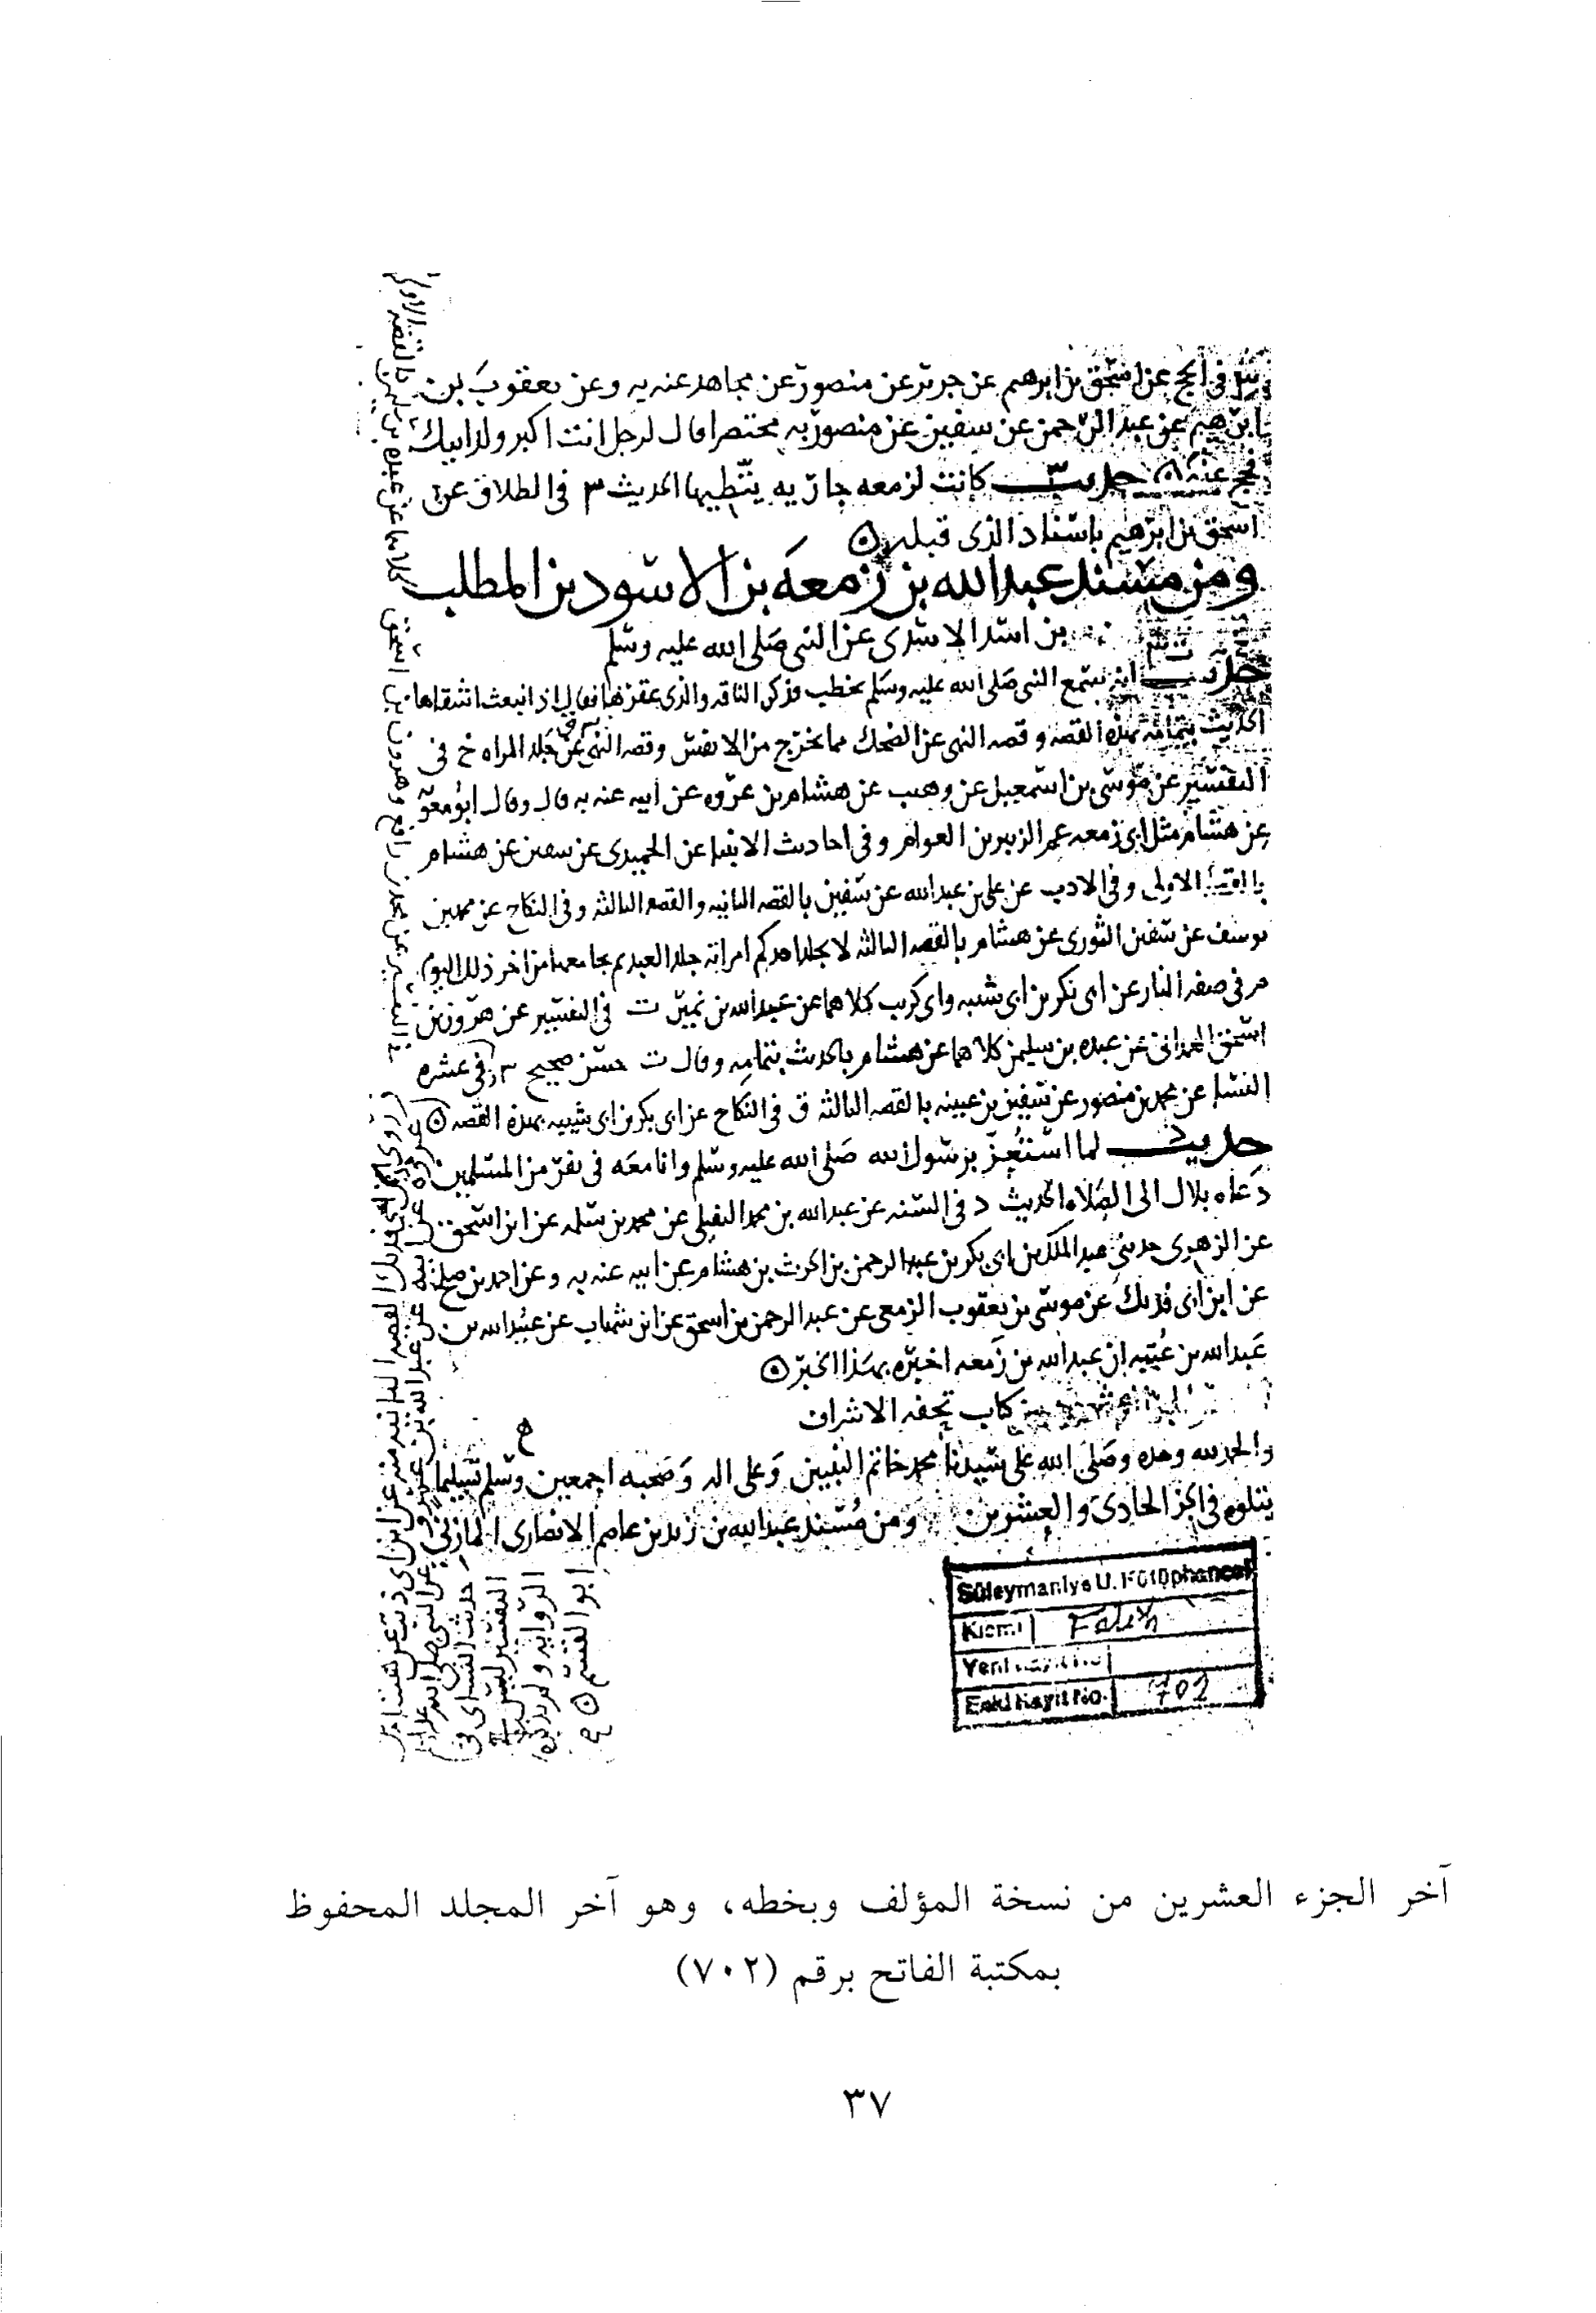 في الحج عن اسحق بن ابرهيم عن جرير عن منصور عن مجاهد عنه به وعن يعقوب بن
ابرهيم عن عبد الرحمن عن سفين عن منصور به مختصرا قال لرجل انت اكبر ولد ابيك
فحج عنه حديث كانت لزمعه جاريه يتطيها الحديث س في الطلاق عن
اسحق بن ابرهيم باسناد الذي قبله
ومن مسند عبد الله بن زمعه بن الاسود بن المطلب
بن اسد الاسدي عن النبي صلى الله عليه وسلم
حديث انه سمع النبي صلى الله عليه وسلم يخطب وذكر الناقه والذي عقرها فقال اذ انبعث اشقاها
الحديث بتمامه بهذه القصه وقصه النهي عن الضحك مما يخرج من الانفس وقصه النهي عن جلد المراه خ في
التفسير عن موسى بن اسمعيل عن وهيب عن هشام بن عروه عن ابيه عنه به قال وقال ابو معويه
عن هشام مثل ابي زمعه عم الزبير بن العوام وفي احاديث الانبيا عن الحميدي عن سفين عن هشام
بالقصه الاولى وفي الادب عن علي بن عبد الله عن سفين بالقصه الثانيه والقصه الثالثه وفي النكاح عن محمد بن
يوسف عن سفين الثوري عن هشام بالقصه الثالثه لا يجلد احدكم امراته جلد العبد ثم يجامعها من اخر ذلك اليوم
م في صفه النار عن ابي بكر بن ابي شيبه وابي كريب كلاهما عن عبد الله بن نمير ت في التفسير عن هرون بن
اسحق الهمداني عن عبده بن سليمن كلاهما عن هشام بالحديث بتمامه وقال ت حسن صحيح س في عشره
النسا عن محمد بن منصور عن سفين بن عيينه بالقصه الثالثه ق في النكاح عن ابي بكر بن ابي شيبه بهذه القصه
حديث لما استعز برسول الله صلى الله عليه وسلم وانا معه في نفر من المسلمين
دعاه بلال الى الصلاه الحديث د في السنه عن عبد الله بن محمد النفيلي عن محمد بن سلمه عن ابن اسحق
عن الزهري حدثني عبد الملك بن ابي بكر بن عبد الرحمن بن الحرث بن هشام عن ابيه عنه به وعن احمد بن صلح
عن ابن ابي فديك عن موسى بن يعقوب الزمعي عن عبد الرحمن بن اسحق عن ابن شهاب عن عبيد الله بن
عبد الله بن عتبه ان عبد الله بن زمعه اخبره بهذا الخبر
من كتاب تحفه الاشراف
والحمد لله وحده وصلى الله على سيدنا محمد خاتم النبيين وعلى اله وصحبه اجمعين وسلم تسليما
يتلوه في الجز الحادي والعشرين ومن مسند عبد الله بن زيد بن عاصم الانصاري المازني
Süleymaniye U. Kütüphanesi
Kısmı Fatih
Yeni Kayıt No
Eski Kayıt No. 702
آخر الجزء العشرين من نسخة المؤلف وبخطه، وهو آخر المجلد المحفوظ
بمكتبة الفاتح برقم (٧٠٢)
٣٧